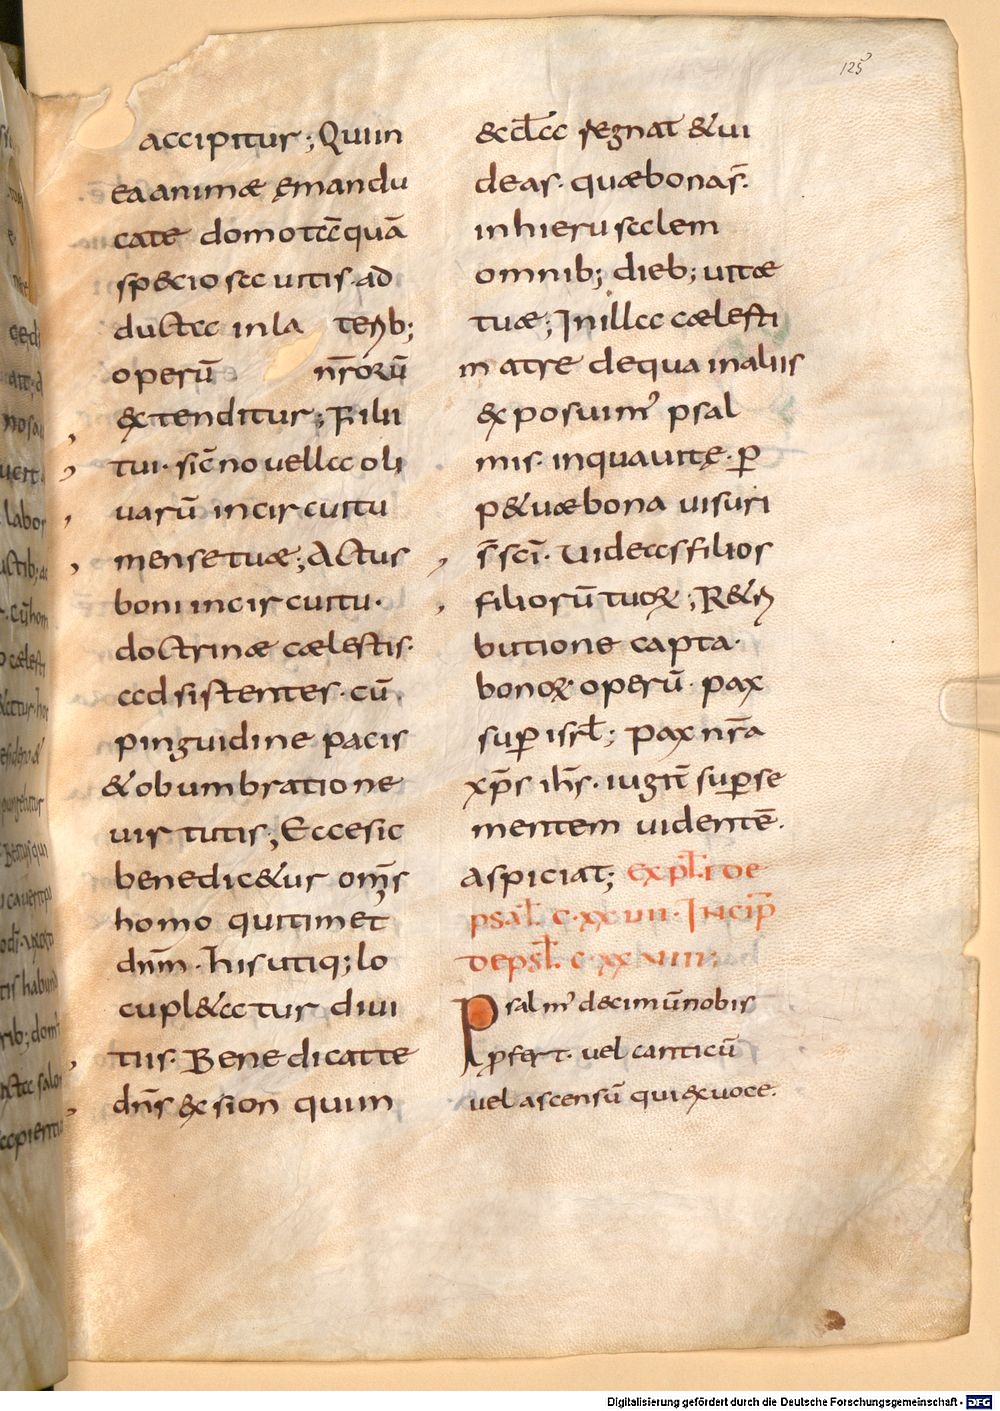 125
accipitur; Quiin
ea animæ ęmandu
cate domo tāquā
sp&ciosa uitis. ad
ducta in la teņb;
operū nr̄orū
&tenditur; Filii
tui. sic̄ nouella oli
uarū in circuitu
mense tuæ; Actus
boni in circuitu.
doctrinæ cælestis.
adsistentes. cū
pinguidine pacis
& obumbratione
uirtutis; Ecce sic
benedic&ur om̄s
homo qui timet
dnm̄. his utiq; lo
cupl&atur diui
tiis. Benedicat te
dn̄s ex sion̄ qui in
&cl̄a regnat & ui
deas. quæ bonas̄.
in hierusalem
omnib; dieb; uitæ
tuæ; In illa cælesti
matre de qua in aliis
exposuim' psal
mis. in qua uitę. ꝑ
p&uæ bona uisuri
s̄ sc̄i. Uideas filios
filiorū tuoꝝ; R&ri
butione capta.
bonoꝝ operū. pax
suꝑ isrl̄; Pax nr̄a
xp̄s ih̄s. iugit̄ suꝑ se
mentem uidentē.
aspiciat; Expl̄i de
psal̄. C.XXVII. Incip̄
de psl̄. C.XXVIII;
Psalm' decimūnobis
ꝓfert. uel canticū
uel ascensū qui ex uoce.
Digitalisierung gefördert durch die Deutsche Forschungsgemeinschaft - DFG